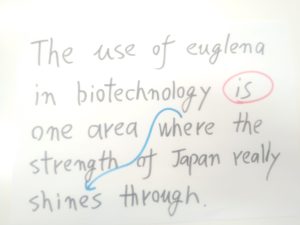 The use of euglena
in biotechnology is
one area where the
strength of Japan really
shines through.